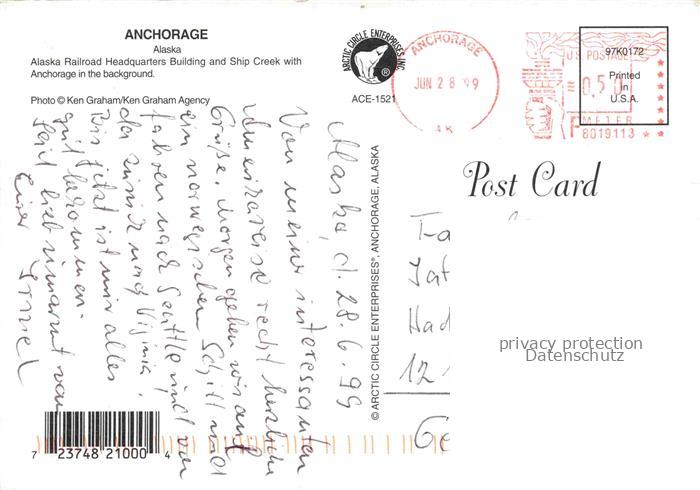 ANCHORAGE
Alaska
Alaska Railroad Headquarters Building and Ship Creek with
Anchorage in the background.
Photo © Ken Graham/Ken Graham Agency
ARCTIC CIRCLE ENTERPRISES INC.
®
ACE-1521
ANCHORAGE
JUN 28 '99
AK
U.S. POSTAGE
0.50
METER
8019113
97K0172
Printed
in
U.S.A.
Post Card
© ARCTIC CIRCLE ENTERPRISES®, ANCHORAGE, ALASKA
Alaska, d. 28.6.99
Von meiner interessanten
recht herzliche
Grüße. Morgen gehen wir auf
ein norwegisches Schiff und
fahren nach Seattle und von
da zurück nach Virginia.
Bis jetzt ist mir alles
gut bekommen.
Seid lieb umarmt von
Eurer
Fa
Had
12
Ge
privacy protection
Datenschutz
7 23748 21000 4